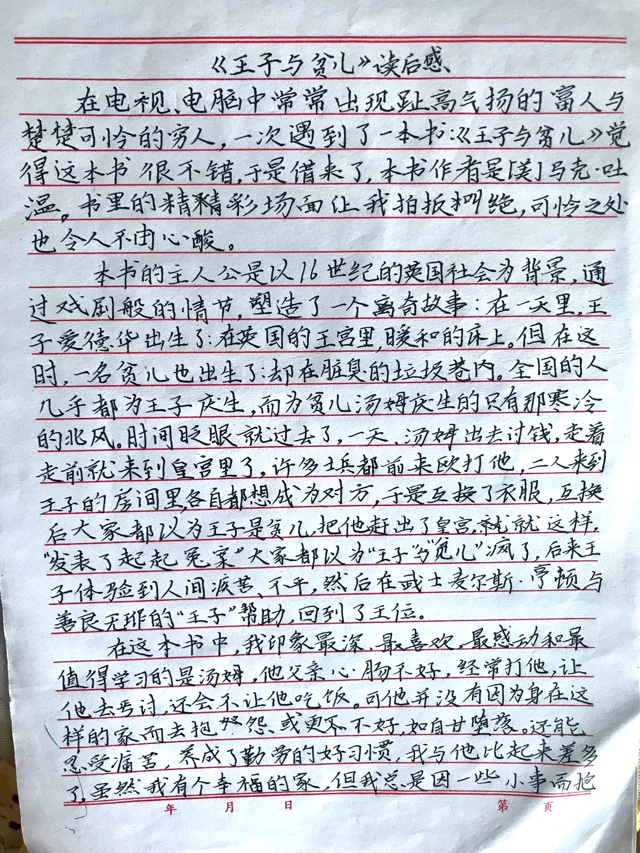 《王子与贫儿》读后感
在电视、电脑中常常出现趾高气扬的富人与
楚楚可怜的穷人，一次遇到了一本书：《王子与贫儿》觉
得这本书很不错，于是借来了，本书作者是[美]马克·吐
温。书里的精精彩场面让我拍扳叫绝，可怜之处
也令人不由心酸。
本书的主人公是以16世纪的英国社会为背景，通
过戏剧般的情节，塑造了一个离奇故事：在一天里，王
子爱德华出生了：在英国的王宫里，暖和的床上。但在这
时，一名贫儿也出生了：却在脏臭的垃圾巷内。全国的人
几乎都为王子庆生，而为贫儿汤姆庆生的只有那寒冷
的北风。时间眨眼就过去了，一天，汤姆出去讨钱，走着
走前就来到皇宫里了，许多士兵都前来欧打他，二人来到
王子的房间里各自都想成为对方，于是互换了衣服，互换
后大家都以为王子是贫儿，把他赶出了皇宫，就就这样，
"发表了起起冤案"大家都以为"王子"与"贫儿"疯了，后来王
子体验到人间疾苦、不平，然后在武士麦尔斯·亨顿与
善良无邪的"王子"帮助，回到了王位。
在这本书中，我印象最深、最喜欢、最感动和最
值得学习的是汤姆，他父亲心肠不好，经常打他，让
他去丐讨，还会不让他吃饭。可他并没有因为身在这
样的家而去抱怨、或更不不好，如自甘堕落。还能
忍受痛苦，养成了勤劳的好习惯，我与他比起来差多
了，虽然我有个幸福的家，但我总是因一些小事而抱
年 月 日 第 页